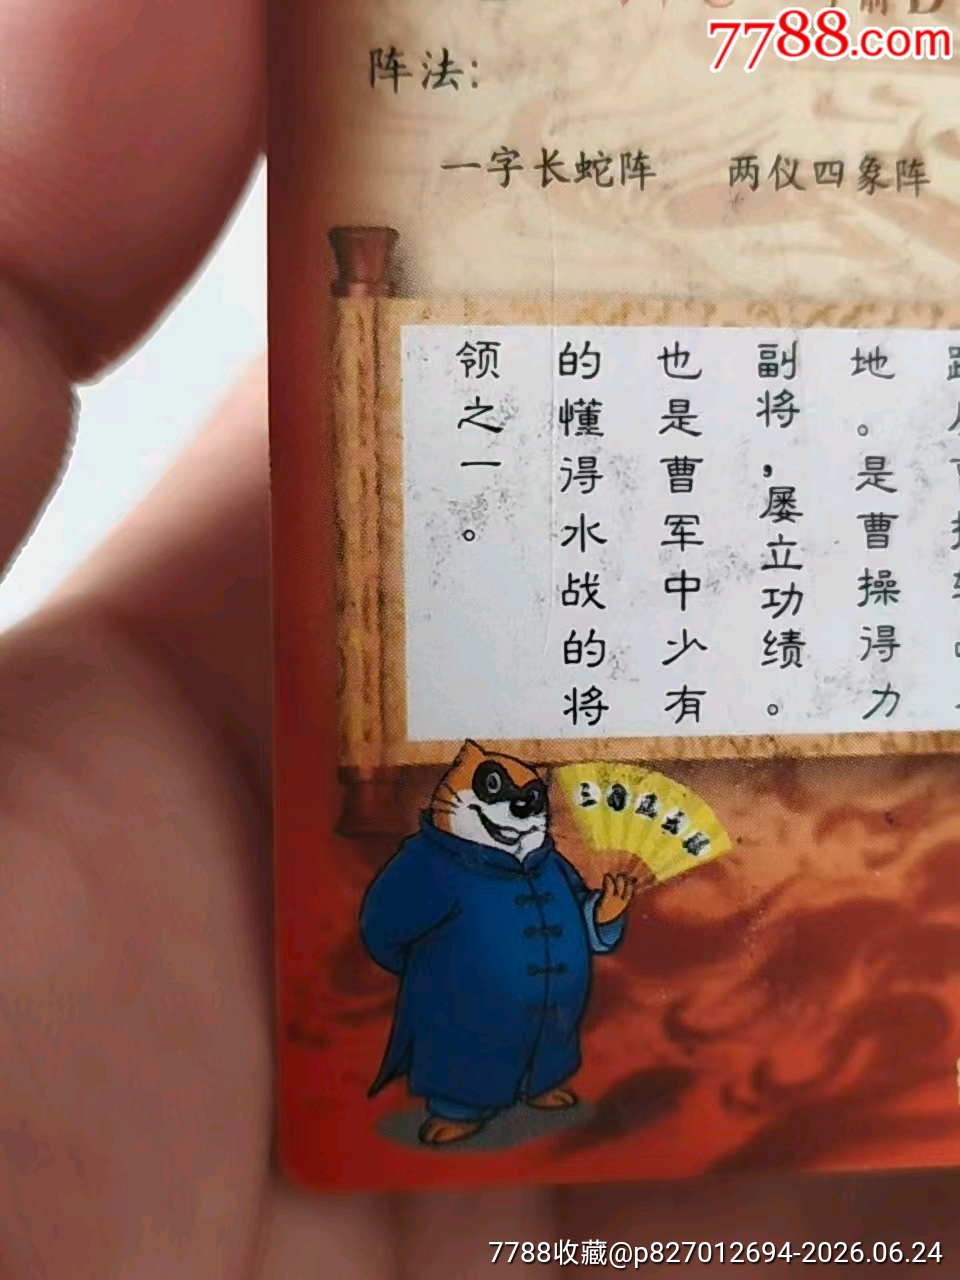 7788.com
阵法：
一字长蛇阵 两仪四象阵
地。是曹操得力
副将，屡立功绩。
也是曹军中少有
的懂得水战的将
领之一。
7788收藏@p827012694-2026.06.24